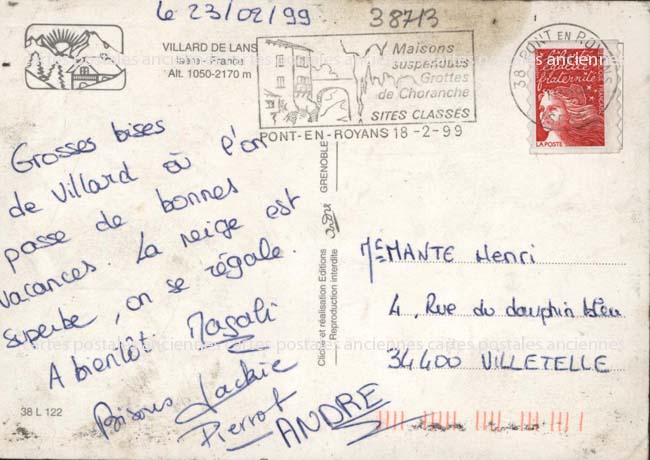 le 23/02/99
38713
VILLARD DE LANS
Isère - France
Alt. 1050-2170 m
Maisons
suspendues
Grottes
de Choranche
SITES CLASSÉS
PONT-EN-ROYANS 18-2-99
38 PONT EN ROYANS
liberté
égalité
fraternité
LA POSTE
Grosses bises
de Villard où l'on
passe de bonnes
vacances. La neige est
superbe, on se régale.
A bientôt. Magali
Bisous Jackie
Pierrot
ANDRE
38 L 122
GRENOBLE
Cliché et réalisation Editions
Reproduction interdite
Mr MANTE Henri
4, Rue du dauphin bleu
34400 VILLETELLE
cartes postales anciennes cartes postales anciennes